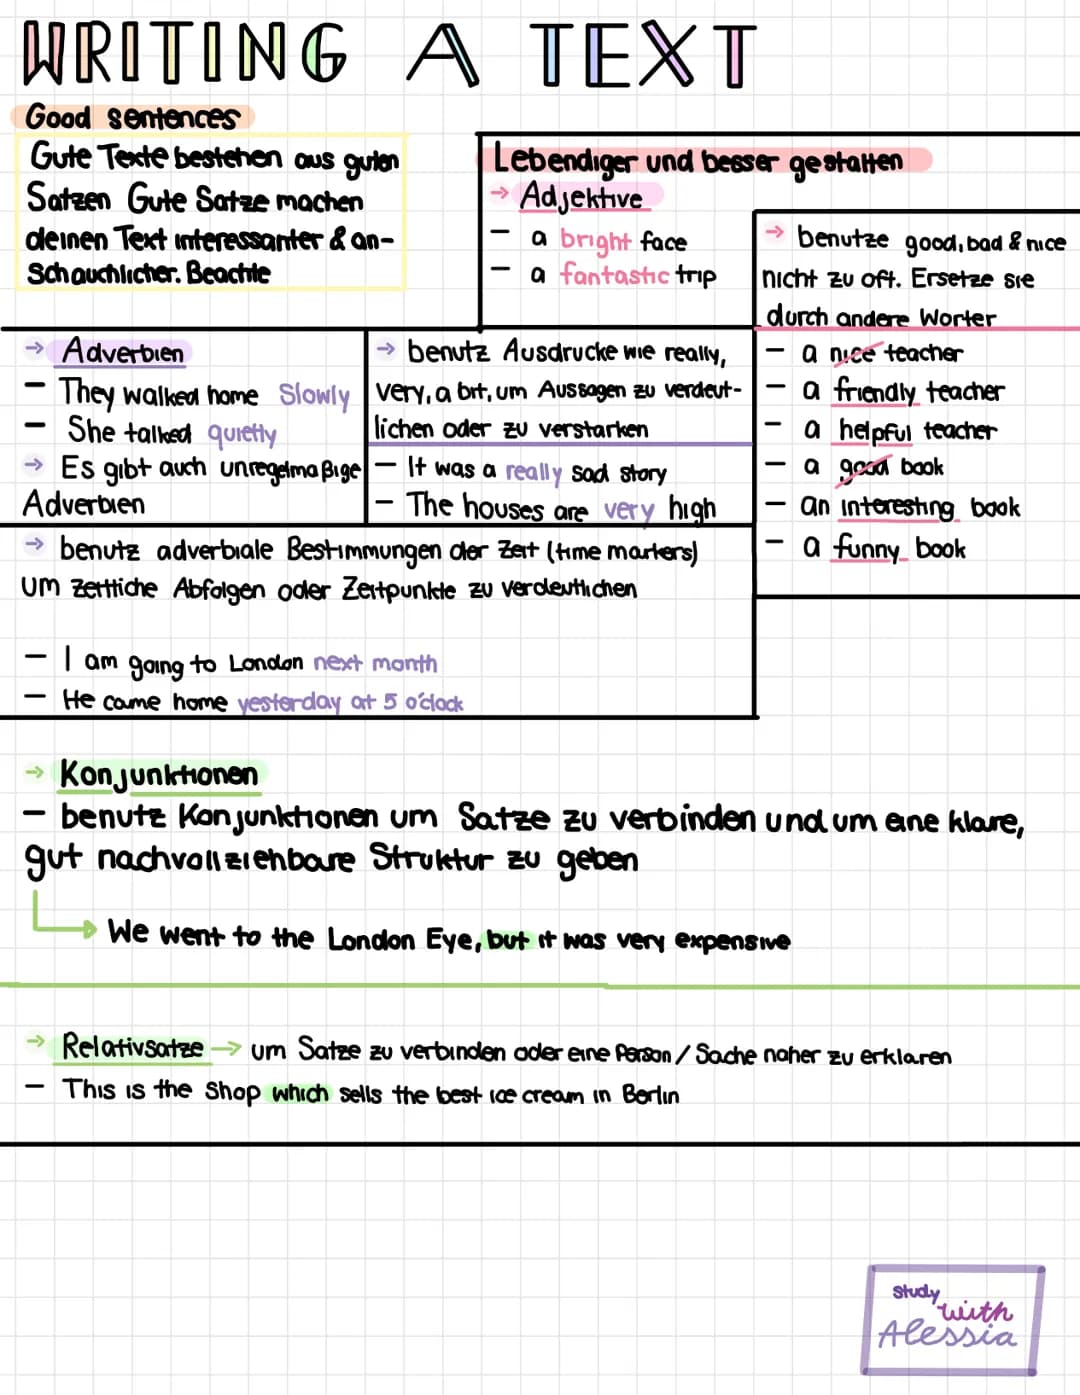 WRITING A TEXT
Good sentences
Gute Texte bestehen aus guten
Satzen Gute Satze machen
deinen Text interessanter & an-
Schauchlicher. Beachte
Lebendiger und besser gestalten
→ Adjektive
- a bright face
- a fantastic trip
→ benutze good, bad & nice
nicht zu oft. Ersetze sie
durch andere Worter
- a nice teacher
- a friendly teacher
- a helpful teacher
- a good book
- an interesting book
- a funny book
→ Adverbien
- They walked home Slowly
- She talked quietly
→ Es gibt auch unregelmaßige
Adverbien
→ benutz Ausdrucke wie really,
very, a bit, um Aussagen zu verdeut-
lichen oder zu verstarken
- It was a really sad story
- The houses are very high
→ benutz adverbiale Bestimmungen der Zeit (time markers)
um zeitliche Abfolgen oder Zeitpunkte zu verdeutlichen
- I am going to London next month
- He came home yesterday at 5 o'clock
→ Konjunktionen
- benutz Konjunktionen um Satze zu verbinden und um eine klare,
gut nachvollziehbare Struktur zu geben
We went to the London Eye, but it was very expensive
→ Relativsatze → um Satze zu verbinden oder eine Person / Sache naher zu erklaren
- This is the Shop which sells the best ice cream in Berlin
study
with
Alessia